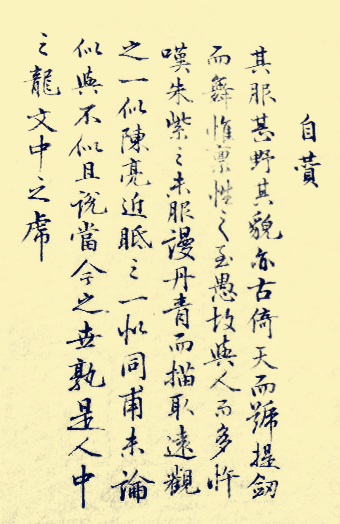 自贊
其服甚野其貌亦古倚天而號提劔
而舞惟稟性之至愚故與人而多忤
嘆朱紫之未服謾丹青而描取遠觀
之一似陳亮近眡之一似同甫未論
似與不似且說當今之世孰是人中
之龍文中之虎